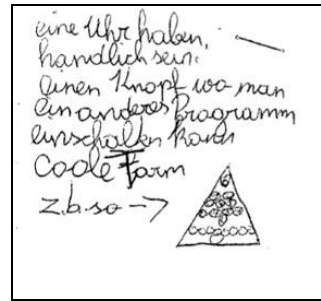 eine Uhr haben,
handlich sein.
einen Knopf wo man
ein anderes Programm
einschalten kann
coole Form
z.b. so →
6